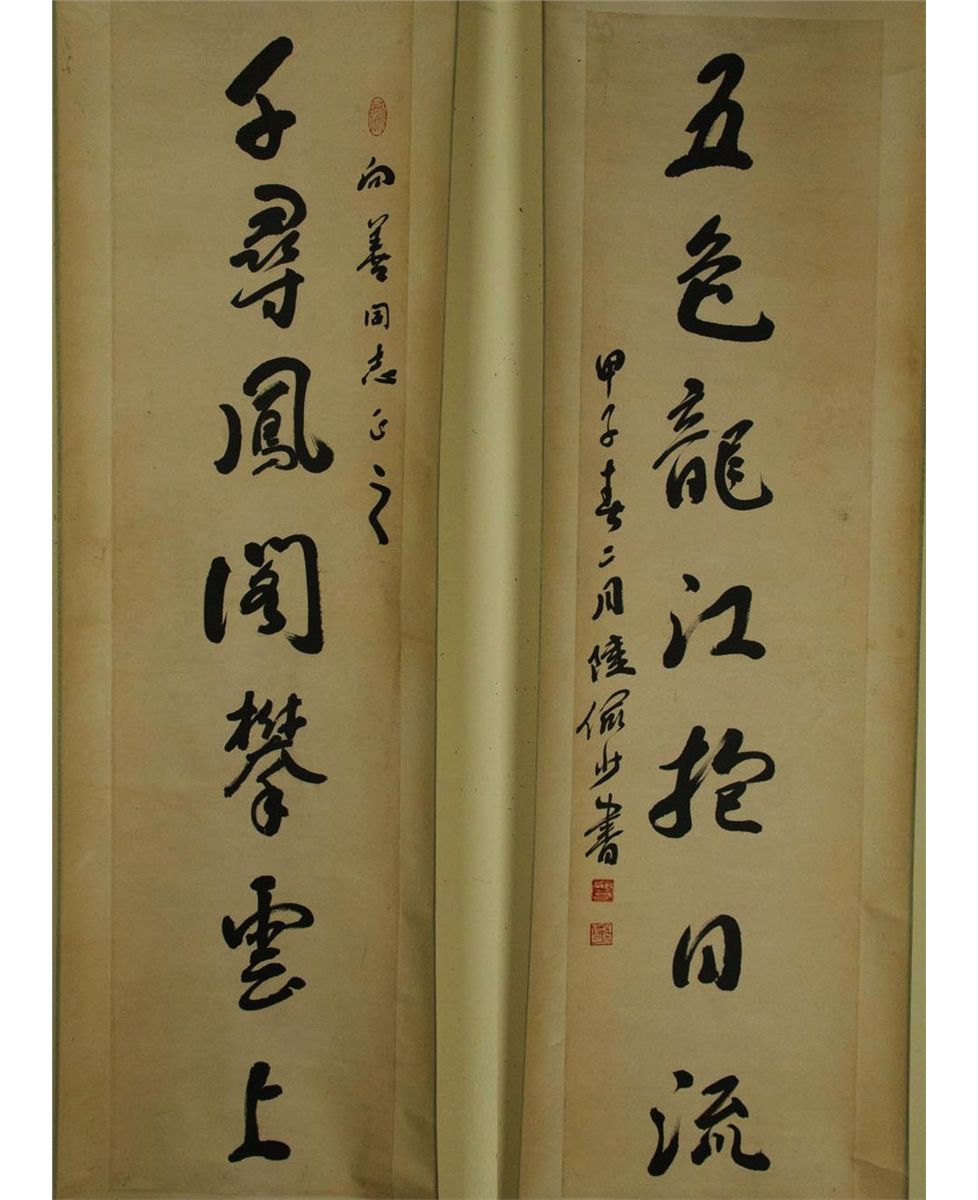 五色龍江抱日流
甲子春二月陸儼少書
向善同志正之
千尋鳳閣攀雲上